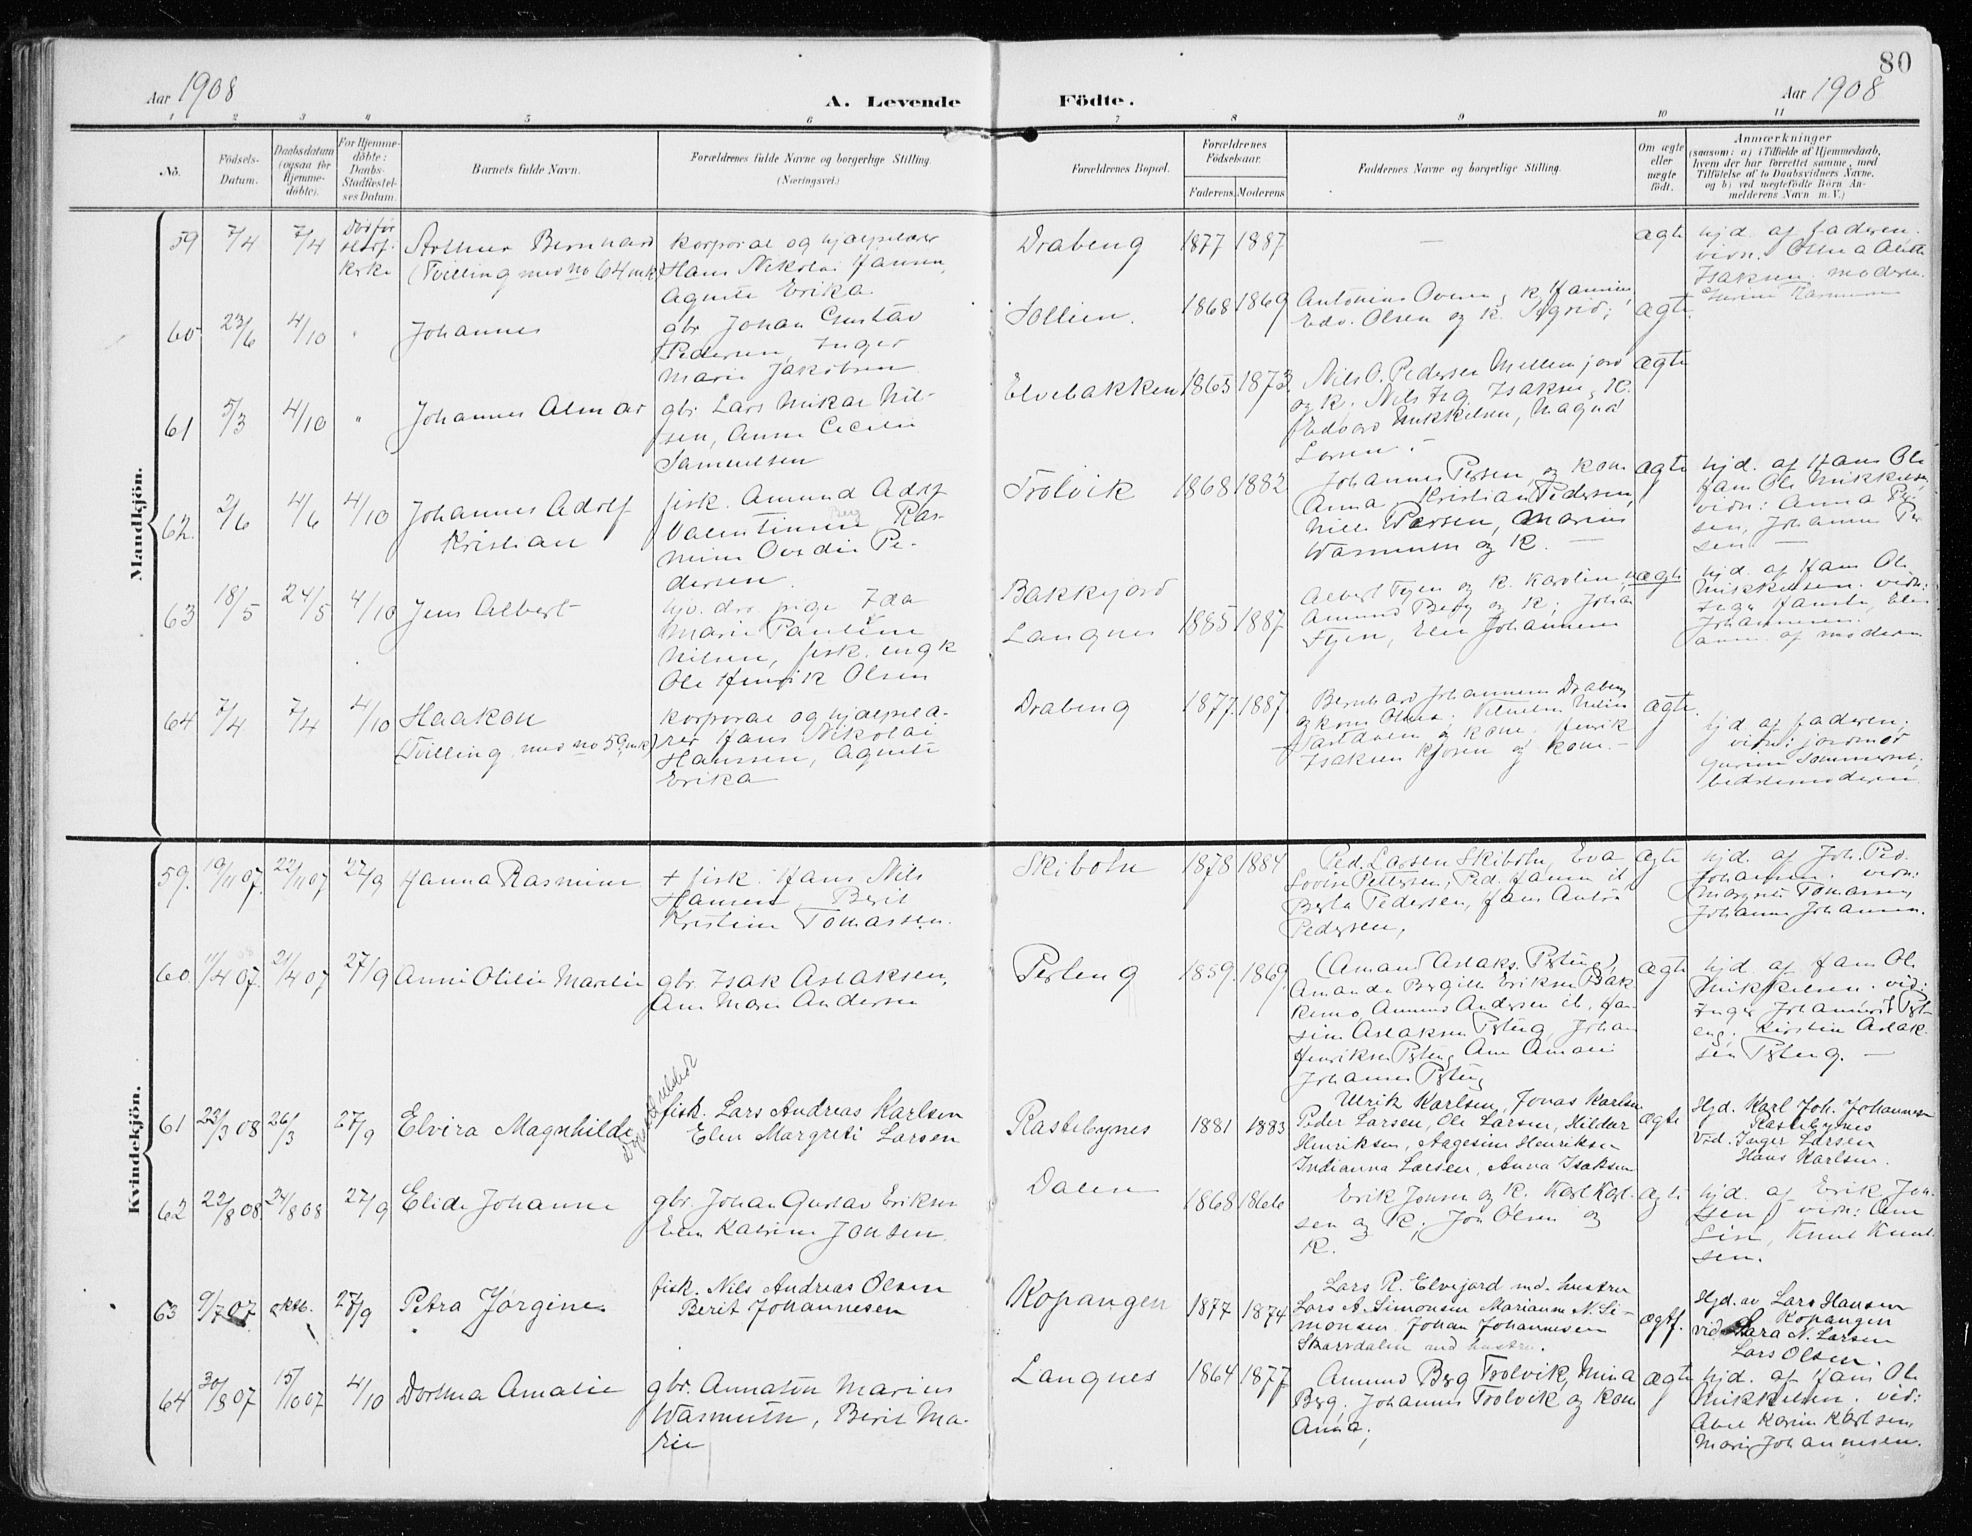 80
Aar 1908
A. Levende Födte.
Aar 1908
1 2 3 4 5 6 7 8 9 10 11
No.
Födsels-
Datum.
Daabsdatum
(ogsaa for
Hjemme-
döbte).
For Hjemme-
döbte:
Daabs-
Stadfæstel-
ses Datum.
Barnets fulde Navn.
Forældrenes fulde Navne og borgerlige Stilling.
(Næringsvei.)
Forældrenes Bopæl.
Forældrenes
Födselsaar.
Faderens. Moderens
Faddernes Navne og borgerlige Stilling.
Om ægte
eller
uægte
født.
Anmærkninger
(saasom: a) i Tilfælde af Hjemmedaab,
hvem der har forrettet samme, med
Tilföielse af to Daabsvidners Navne.
og b) ved uegtefödte Börn An-
melderens Navn m. V.)
Mandkjön.
59 7/4 7/4 Död før
kirke
Arthur Bernhard
(Tvilling med no 64 mk)
korporal og hjælpelærer
Hans Nikolai Hansen,
Agnete Erika
Drabeng 1877 1887 — ægte
hjd. af faderen.
Isaksen. moderen.
60 23/6 4/10 " Johannes
gbr. Johan Gustav
Pedersen, Inger
Marie Jakobsen
Sollien. 1868 1869
Antonius Ovena, K. Hansine,
Edv. Olsen og K. Sigrid; ægte.
61 5/3 4/10 " Johannes Almar
gbr. Lars Mikal Nil-
sen, Anne Cecilie
Samuelsen
Elvebakken 1865 1873
Nils O. Pedersen Mellemjord
og K. Nils Isaksen, K.
Edvard Mikkelsen, Magna
Larsen. —
ægte
62. 2/6 4/6 4/10 Johannes Adolf
Kristian
fisk. Amund Adolf
Valentinsen Berg Ras-
mine Ovedie Pe-
dersen.
Trolvik 1868 1882
Johannes Persen og kone
Anna, Kristian Pedersen,
Nills Persen, Marius
Wasmuth og K. —
ægte
hjd. af Hans Ole
Hans Ole Mikkelsen,
vidn: Anna Per
sen, Johannes Per
sen —
63 18/5 24/5 4/10 Jens Albert
hjv. dro pige Ida
Marie Pauline
Nilsen, fisk. ungk
Ole Henrik Olsen
Bakkejord
Langnes 1885 1887
Albert Fyen og K. Karoline,
Amund Berg og K; Johan
Fyen, Elen Johannesen
uægte
hjd. af Hans Ole
Mikkelsen. vidn:
Inger Hansen, Elen
Johannesen.
anm. af moderen
64 7/4 7/4 4/10 Haakon
(Tvilling med no 59 mk)
korporal og hjælpelæ-
rer Hans Nikolai
Hanssen, Agnete
Erika
Drabeng 1877. 1887.
Bernhard Johannesen Drabeng
og kone Oline; Vilhelm Nilsen
og kone. Henrik
Isaksen Kjosen og kone. —
ægte.
hjd. af faderen.
vidn: jordmor
Gurine Sommerset,
bedstemoderen
Kvindekjön.
59. 19/11 07. 22/11 07 27/9 Hanna Rasmine
+ fisk. Hans Nils
Hansen, Berit
Kristine Tomassen.
Skibotn 1878 1884
Ped. Larsen Skibotn, Eva
Lovise Pettersen, Ped. Hansen ib,
Berta Pedersen, Hans Anton
Pedersen,
ægte
hjd. af Joh. Ped.
Johansen. vidn:
Margrete Tomassen,
Johanne Johansen.
60 11/4 07. 21/4 07 27/9 Anne Otilie Marelie
gbr. Isak Aslaksen,
Ane Marie Andersen
Perteng 1859. 1869.
(Amand Aslaks. Pgteng),
Amanda Bergitte Eriksen Bak-
kemo, Amund Andersen ib, Han-
sine Aslaksen Pgteng, Johan
Henriksen Pgteng Ane Amalie
Johannes Pgteng
ægte
hjd. af Hans Ole
Mikkelsen. vid:
Inger Johannes Pgt-
eng, Kirstine Aslak-
sen Pgteng. —
61 23/3 08 26/3 27/9 Elvira Magnhilde
fisk. Lars Andreas Karlsen
Elen Margreti Larsen
Rastebynes 1881 1883
Ulrik Karlsen, Jonas Karlsen
Peder Larsen, Ole Larsen, Hildur
Henriksen, Aagesine Henriksen
Indianna Larsen, Anna Isaksen
ægte
Hjd. Karl Joh. Johannesen
Rastebynes
Vid. Inger Larsen
Hans Karlsen.
62 22/8 08 24/8 08 27/9 Elide Johanne
gbr. Johan Gustav Eriksen
Elen Katrine Jonsen
Dalen 1868 1866
Erik Jonsen og K. Karl Karl-
sen og K, Jon Olsen og
K.
ægte
hjd. af Erik Jon-
sen, vidn: Ane
Lise, Knut Knut-
sen.
63 9/7 07 oktb. 27/9 Petra Jørgine
fisk. Nils Andreas Olsen
Berit Johannesen
Kopangen 1877 1874
Lars R. Elvejord md. hustru
Lars A. Simonsen Marianne N. Si-
monsen. Johan Johannesen
Skarsdalen med hustru.
ægtf.
Hjd. av Lars Hansen
Kopangen
vid Sara N. Larsen
Lars Olsen.
64 30/8 07 15/10 07 4/10 Dorthea Amalie
gbr. Annaton Marius
Wasmuth, Berit Ma-
rie
Langnes 1864 1877
Amund Berg Trolvik, Mina
Berg. Johannes Trolvik og kone
Anna,
ægte
hjd. af Hans Ole
Mikkelsen. vid:
Abel Karin Karlsen,
Marie Johannesen.